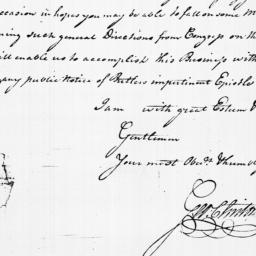 occasion in hopes you may be able to fall on some M
ning such general Directions from Congress on th
ll enable us to accomplish this Business with
any public Notice of Rutlers impertinent Epistle
I am with great Esteem &
Gentlemen
Your most Obed. & humbl
Geo. Clinton